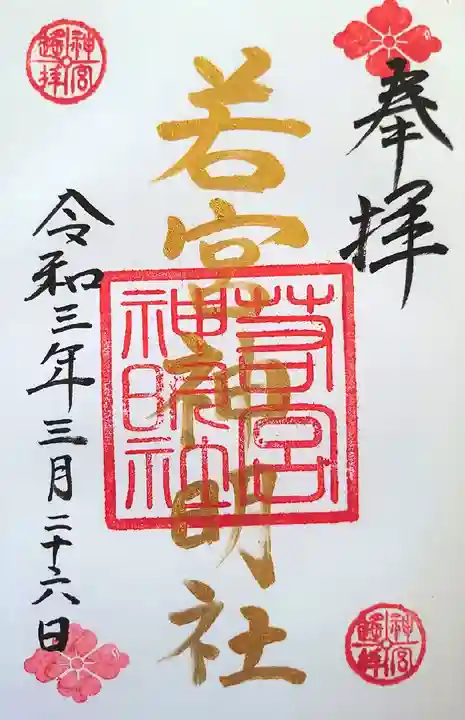 奉拝
若宮神明社
令和三年三月二十六日
若宮
神明社
神宮
遥拝
神宮
遥拝